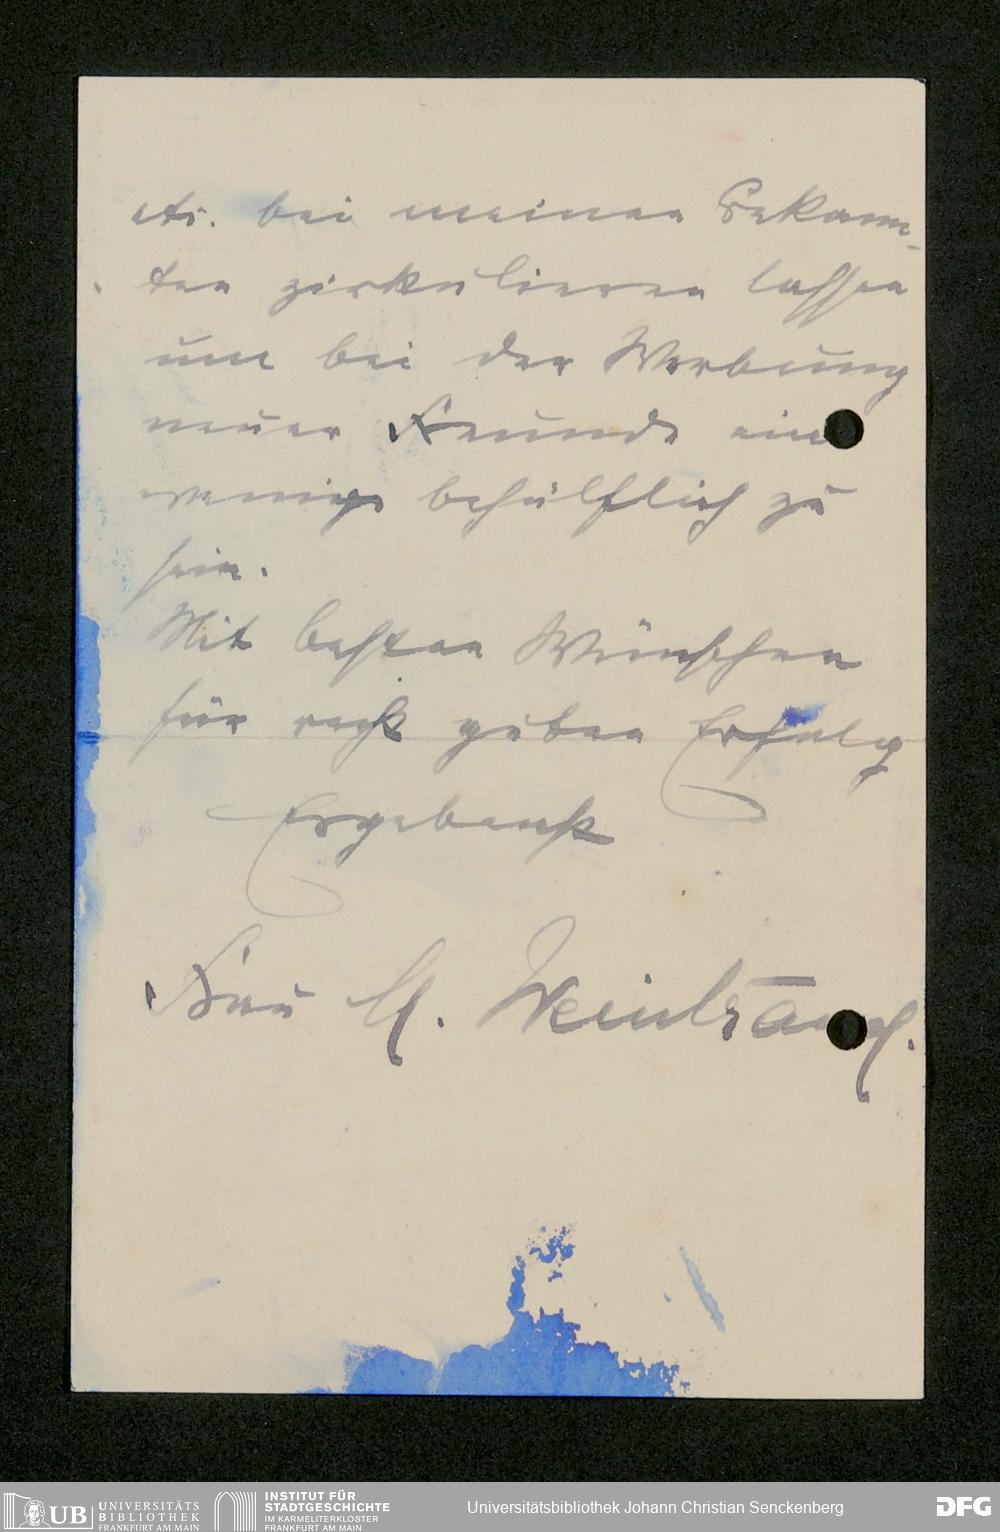 etc. bei meinen Bekann-
ten zirkulieren lassen
um bei der Werbung
neuer Freunde ein
wenig behülflich zu
sein.
Mit besten Wünschen
für recht guten Erfolg
Ergebenst
Frau M.
UB
UNIVERSITÄTS
BIBLIOTHEK
FRANKFURT AM MAIN
INSTITUT FÜR
STADTGESCHICHTE
IM KARMELITERKLOSTER
FRANKFURT AM MAIN
Universitätsbibliothek Johann Christian Senckenberg
DFG